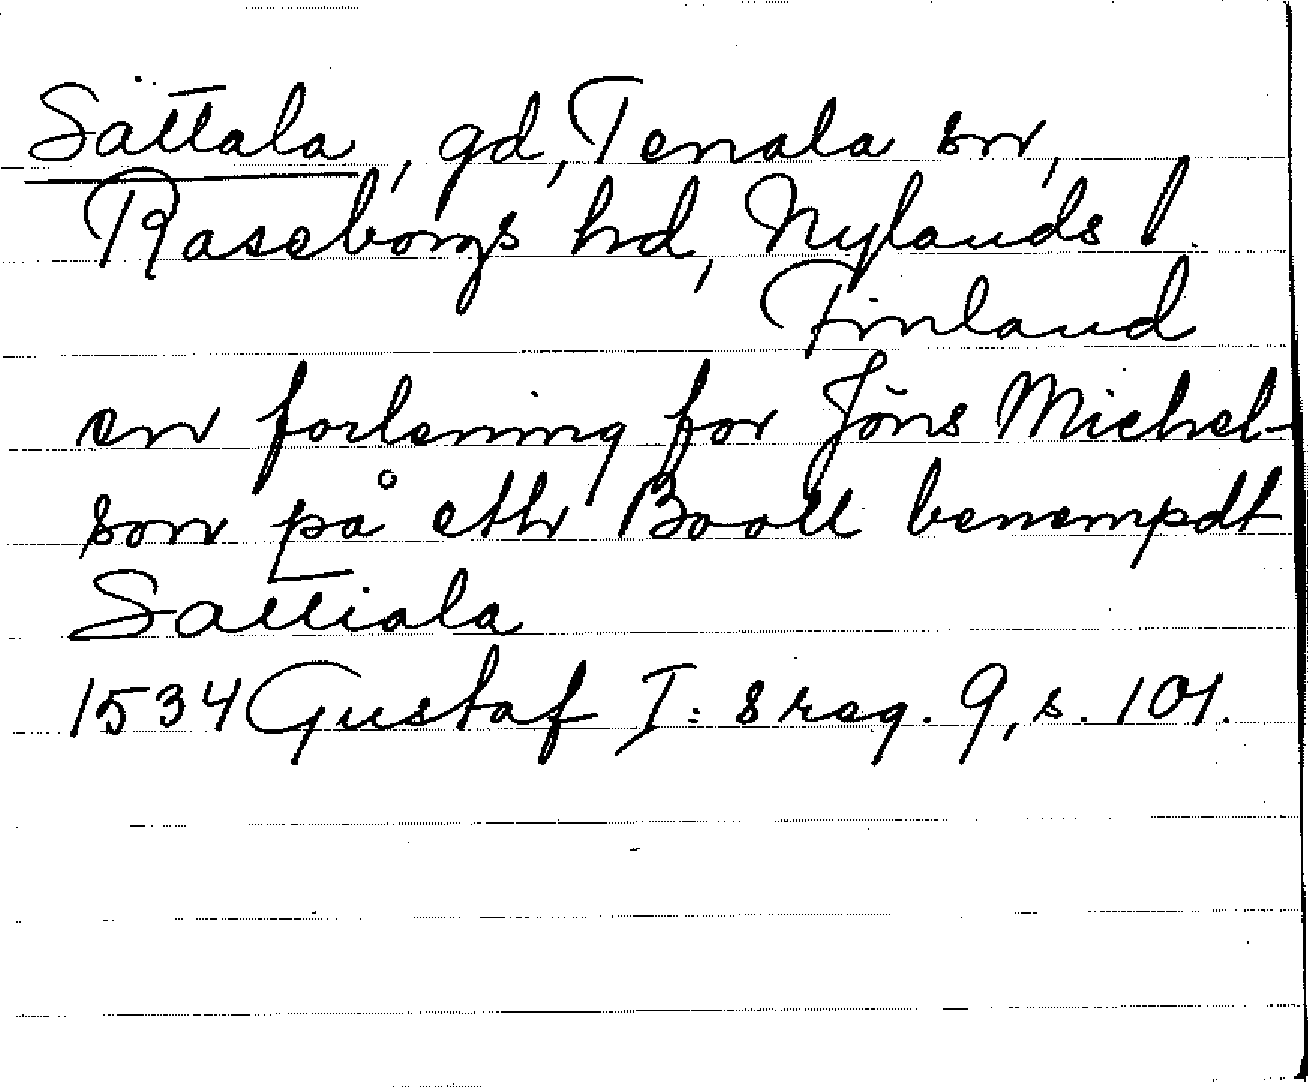 Sättala, gd, Tenala sn,
Raseborgs hd, Nylands l.
Finland
en forlening for Jöns Michel-
son på eth Booll benempdt
Sattiala
1534 Gustaf I:s reg. 9, s. 101.